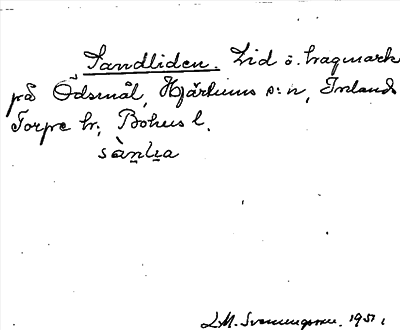 Sandliden. Lid o. hagmark
på Ödsmål, Hjärtums s:n, Inlands
Torpe hr, Bohusl.
sàṉḻı̱a
L.M. Svenungsson. 1951.